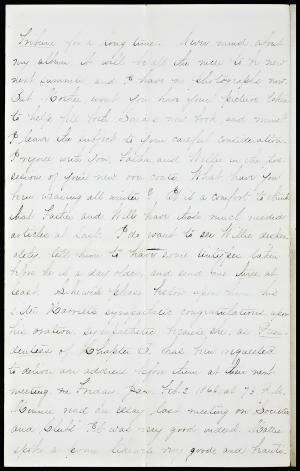 Tribune for a long time. Never mind about
my album it will be all the nicer to be new
next summer and I have no photographs now.
But Mother won't you have your picture taken
to help fill both Sara's new book and mine?
I leave the subject to your careful consideration.
I rejoice with you, Father and Willie in the pos-
session of your new coats. What have you
been wearing all winter? It is a comfort to think
that Father and Will have those much needed
articles at last. I do want to see Willie desper-
ately, tell him to have some tintypes taken
before he is a day older, and send one here at
least. Likewise please bestow upon him his
sympathetic congratulations upon
his oration, sympathetic, because she, as Pres-
identess of Chapter has been requested
to deliver an address before them at their next
meeting on Friday, Feb. 2 1866 at 7½ P.M.
Minnie read an essay last meeting on Societies
and Clubs. It was very good indeed. Matie
spoke a poem likewise very good and